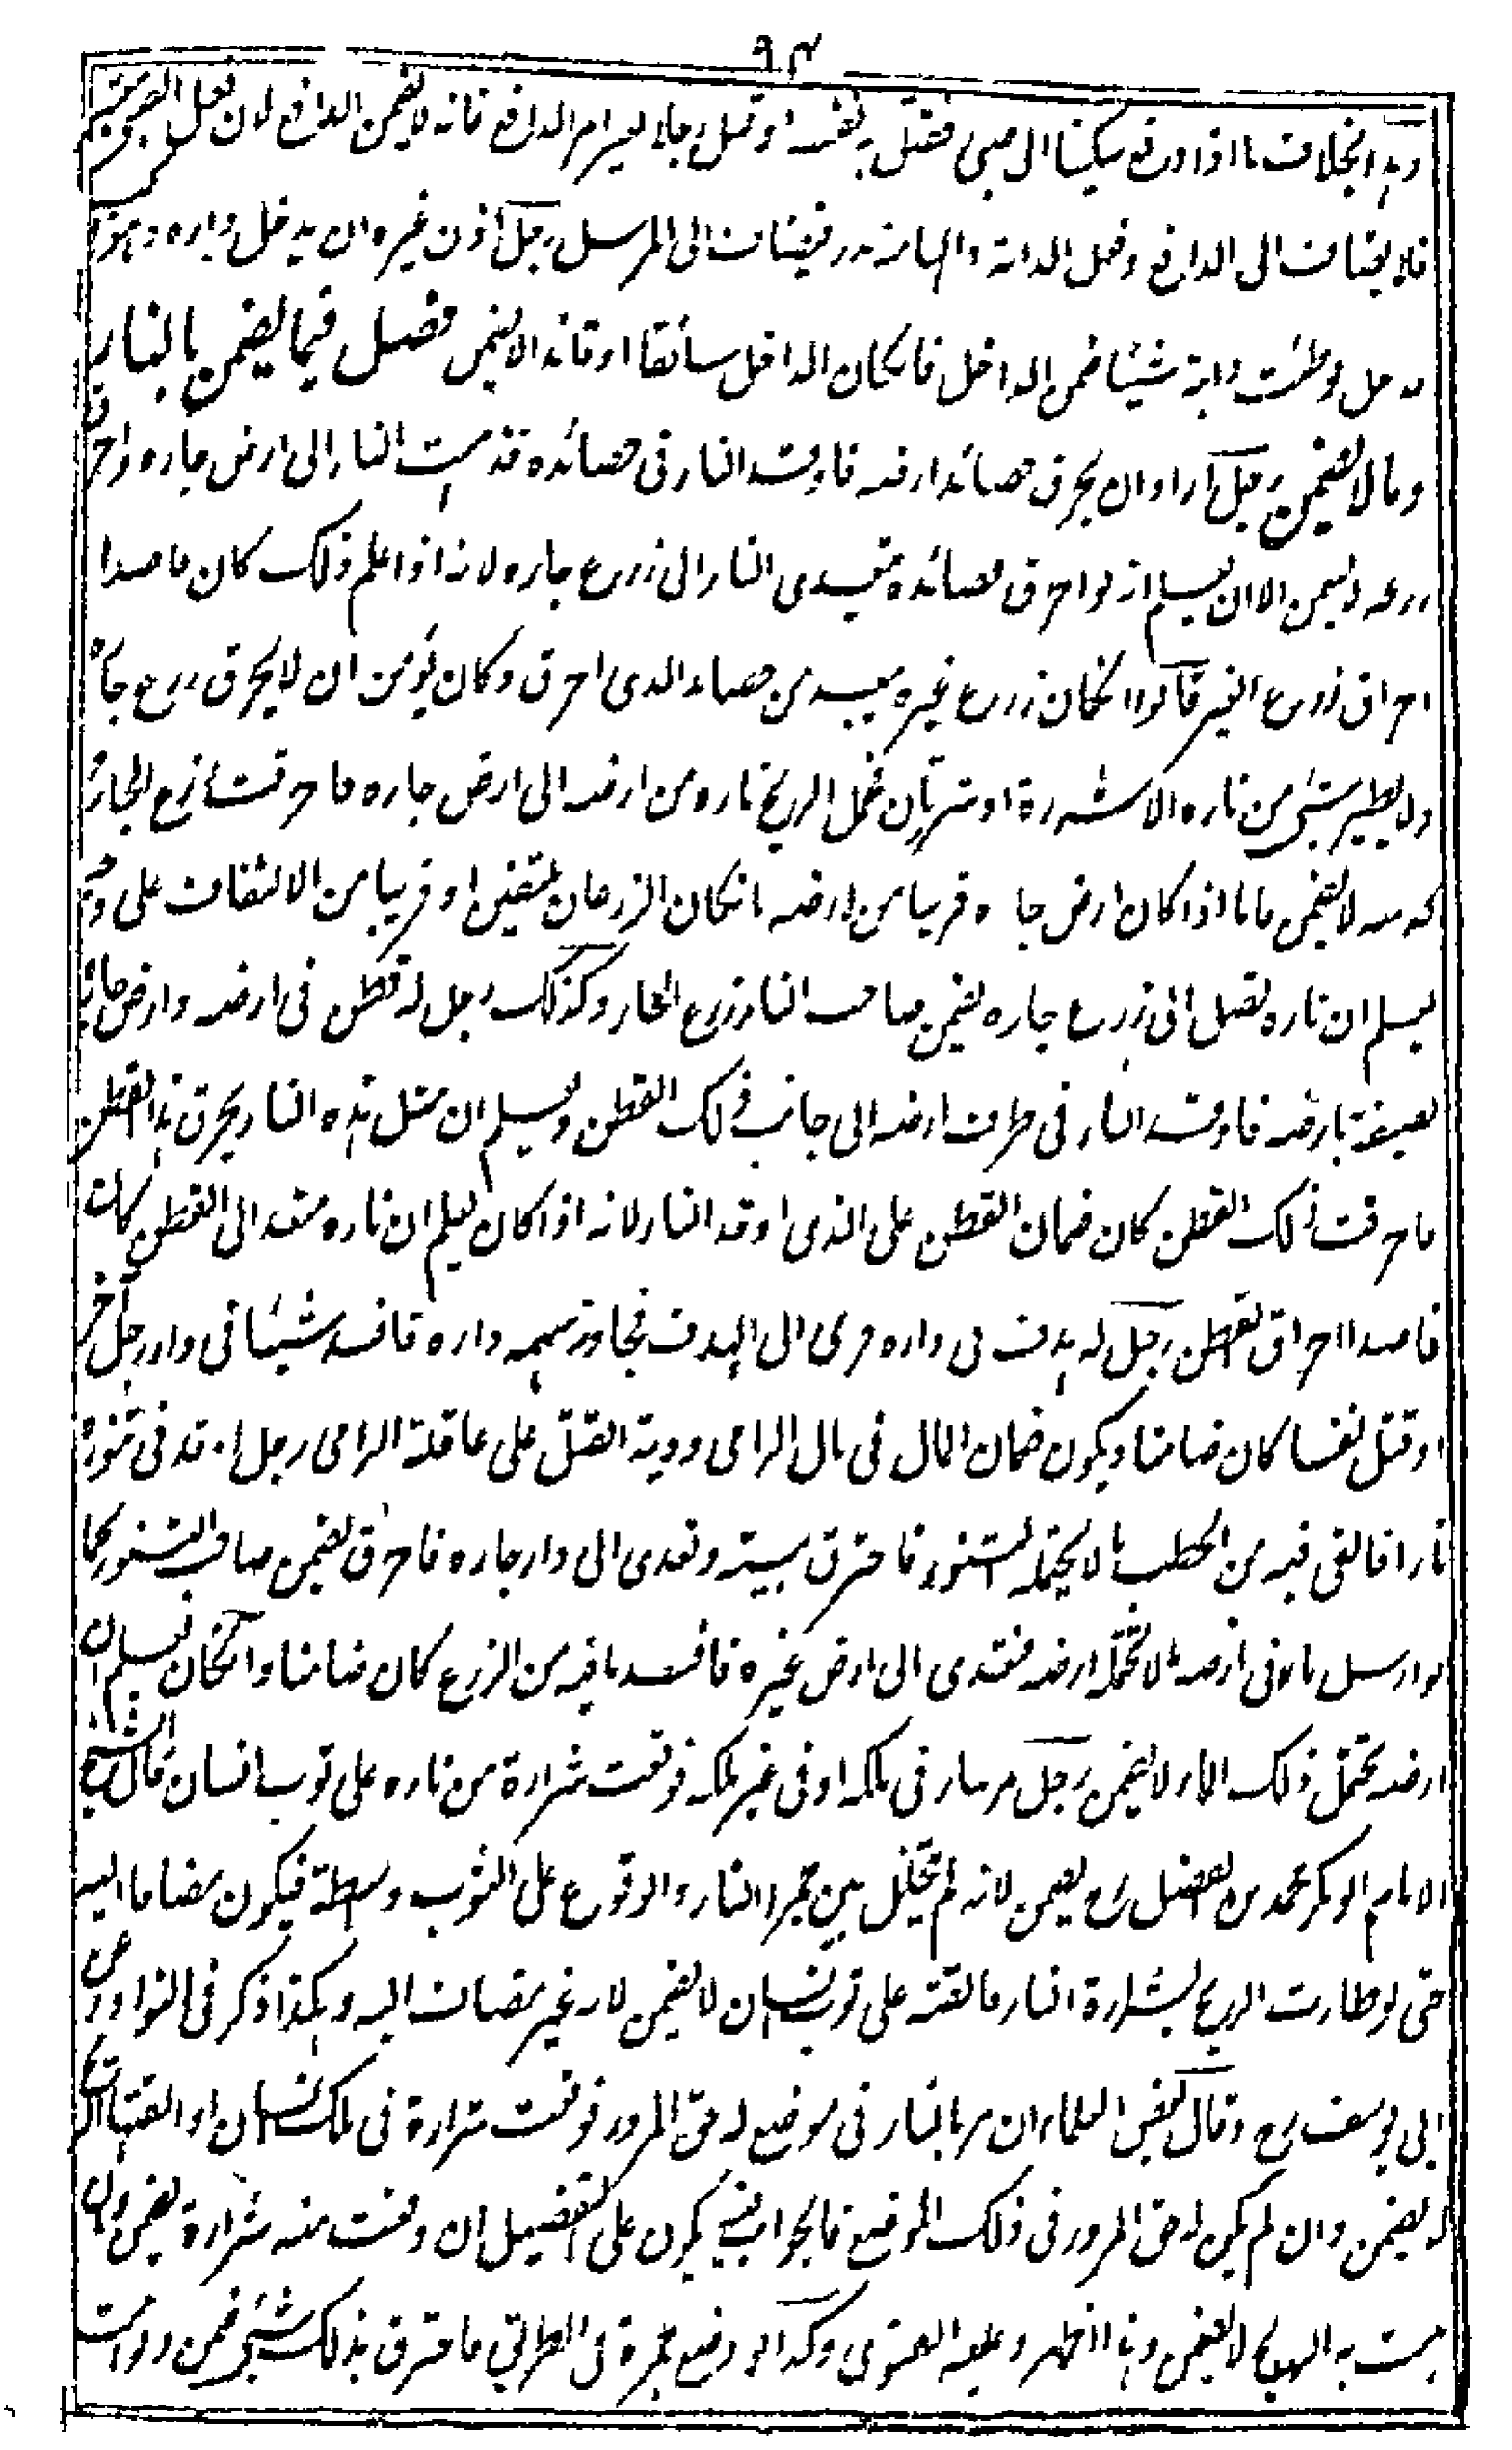 ٩٤
وهذا بخلاف ما اذا دفع سكينا الى صبي فقتل به نفسه او قتل رجلا ليس امر الدافع فانه لا يضمن الدافع لان فعل الصبي معتبر
فلا يضاف الى الدافع وفعل الدابة والبهائم هدر فيضاف الى المرسل رجل اذن غيره ان يدخل داره وهو
دخل وطئت دابة شيئا ضمن الداخل فانكان الداخل سائقا او قائدا لا يضمن فصل فيما يضمن بالنار
وما لا يضمن رجل اراد ان يحرق حصائد ارضه فاوقد النار في حصائده فذهبت النار الى ارض جاره واحرق
زرعه لا يضمن الا ان يعلم انه لو احرق حصائده يتعدى النار الى زرع جاره لانه اذا علم ذلك كان قاصدا
احراق زرع الغير قالوا انكان زرع غيره يبعد من حصائد الذي احرق وكان يؤمن ان لا يحرق زرع جاره
ولا يطير شئ من ناره الا شررة او شررتان فحمل الريح ناره من ارضه الى ارض جاره فاحرقت زرع الجار و
كدسه لا يضمن فاما اذا كان ارض جاره قريبا من ارضه بانكان الزرعان ملتفين او قريبا من الالتفاف على وجه
يعلم ان ناره تصل الى زرع جاره يضمن صاحب النار زرع الجار وكذلك رجل له قطن في ارضه وارض جاره
لصيقة بارضه فاوقد النار في طرف ارضه الى جانب ذلك القطن ويعلم ان مثل هذه النار يحرق هذا القطن
فاحرقت ذلك القطن كان ضمان القطن على الذي اوقد النار لانه اذا كان يعلم ان ناره يتعدى الى القطن كان
قاصدا احراق القطن رجل له هدف في داره فرمى الى الهدف فجاوز سهمه داره فافسد شيئا في دار رجل آخر
او قتل نفسا كان ضامنا ويكون ضمان المال في مال الرامي ودية القتل على عاقلة الرامي رجل اوقد في تنوره
نارا فالقى فيه من الحطب ما لا يحتمله التنور فاحترق بيته وتعدى الى دار جاره فاحرق يضمن صاحب التنور كما
لو ارسل ماء في ارضه ما لا تحتمله ارضه فتعدى الى ارض غيره فافسد ما فيه من الزرع كان ضامنا وانكان يعلم ان
ارضه يحتمل ذلك الماء لا يضمن رجل مر بنار في ملكه او في غير ملكه فوقعت شرارة من ناره على ثوب انسان قال الشيخ
الامام ابو بكر محمد بن الفضل رح يضمن لانه لم يتخلل بين حمل النار والوقوع على الثوب واسطة فيكون مضافا اليه
حتى لو طارت الريح بشرارة النار فالقته على ثوب انسان لا يضمن لانه غير مضاف اليه وهكذا ذكر في النوادر عن
ابي يوسف رح وقال بعض العلماء ان مر بالنار في موضع له حق المرور فوقعت شرارة في ملك انسان او القتها الريح
لا يضمن وان لم يكن له حق المرور في ذلك الموضع فالجواب فيه يكون على التفصيل ان وقعت منه شرارة يضمن وان
هبت به الريح لا يضمن وهذا اظهر وعليه الفتوى وكذا لو وضع جمرة في الطريق فاحترق بذلك شئ ضمن